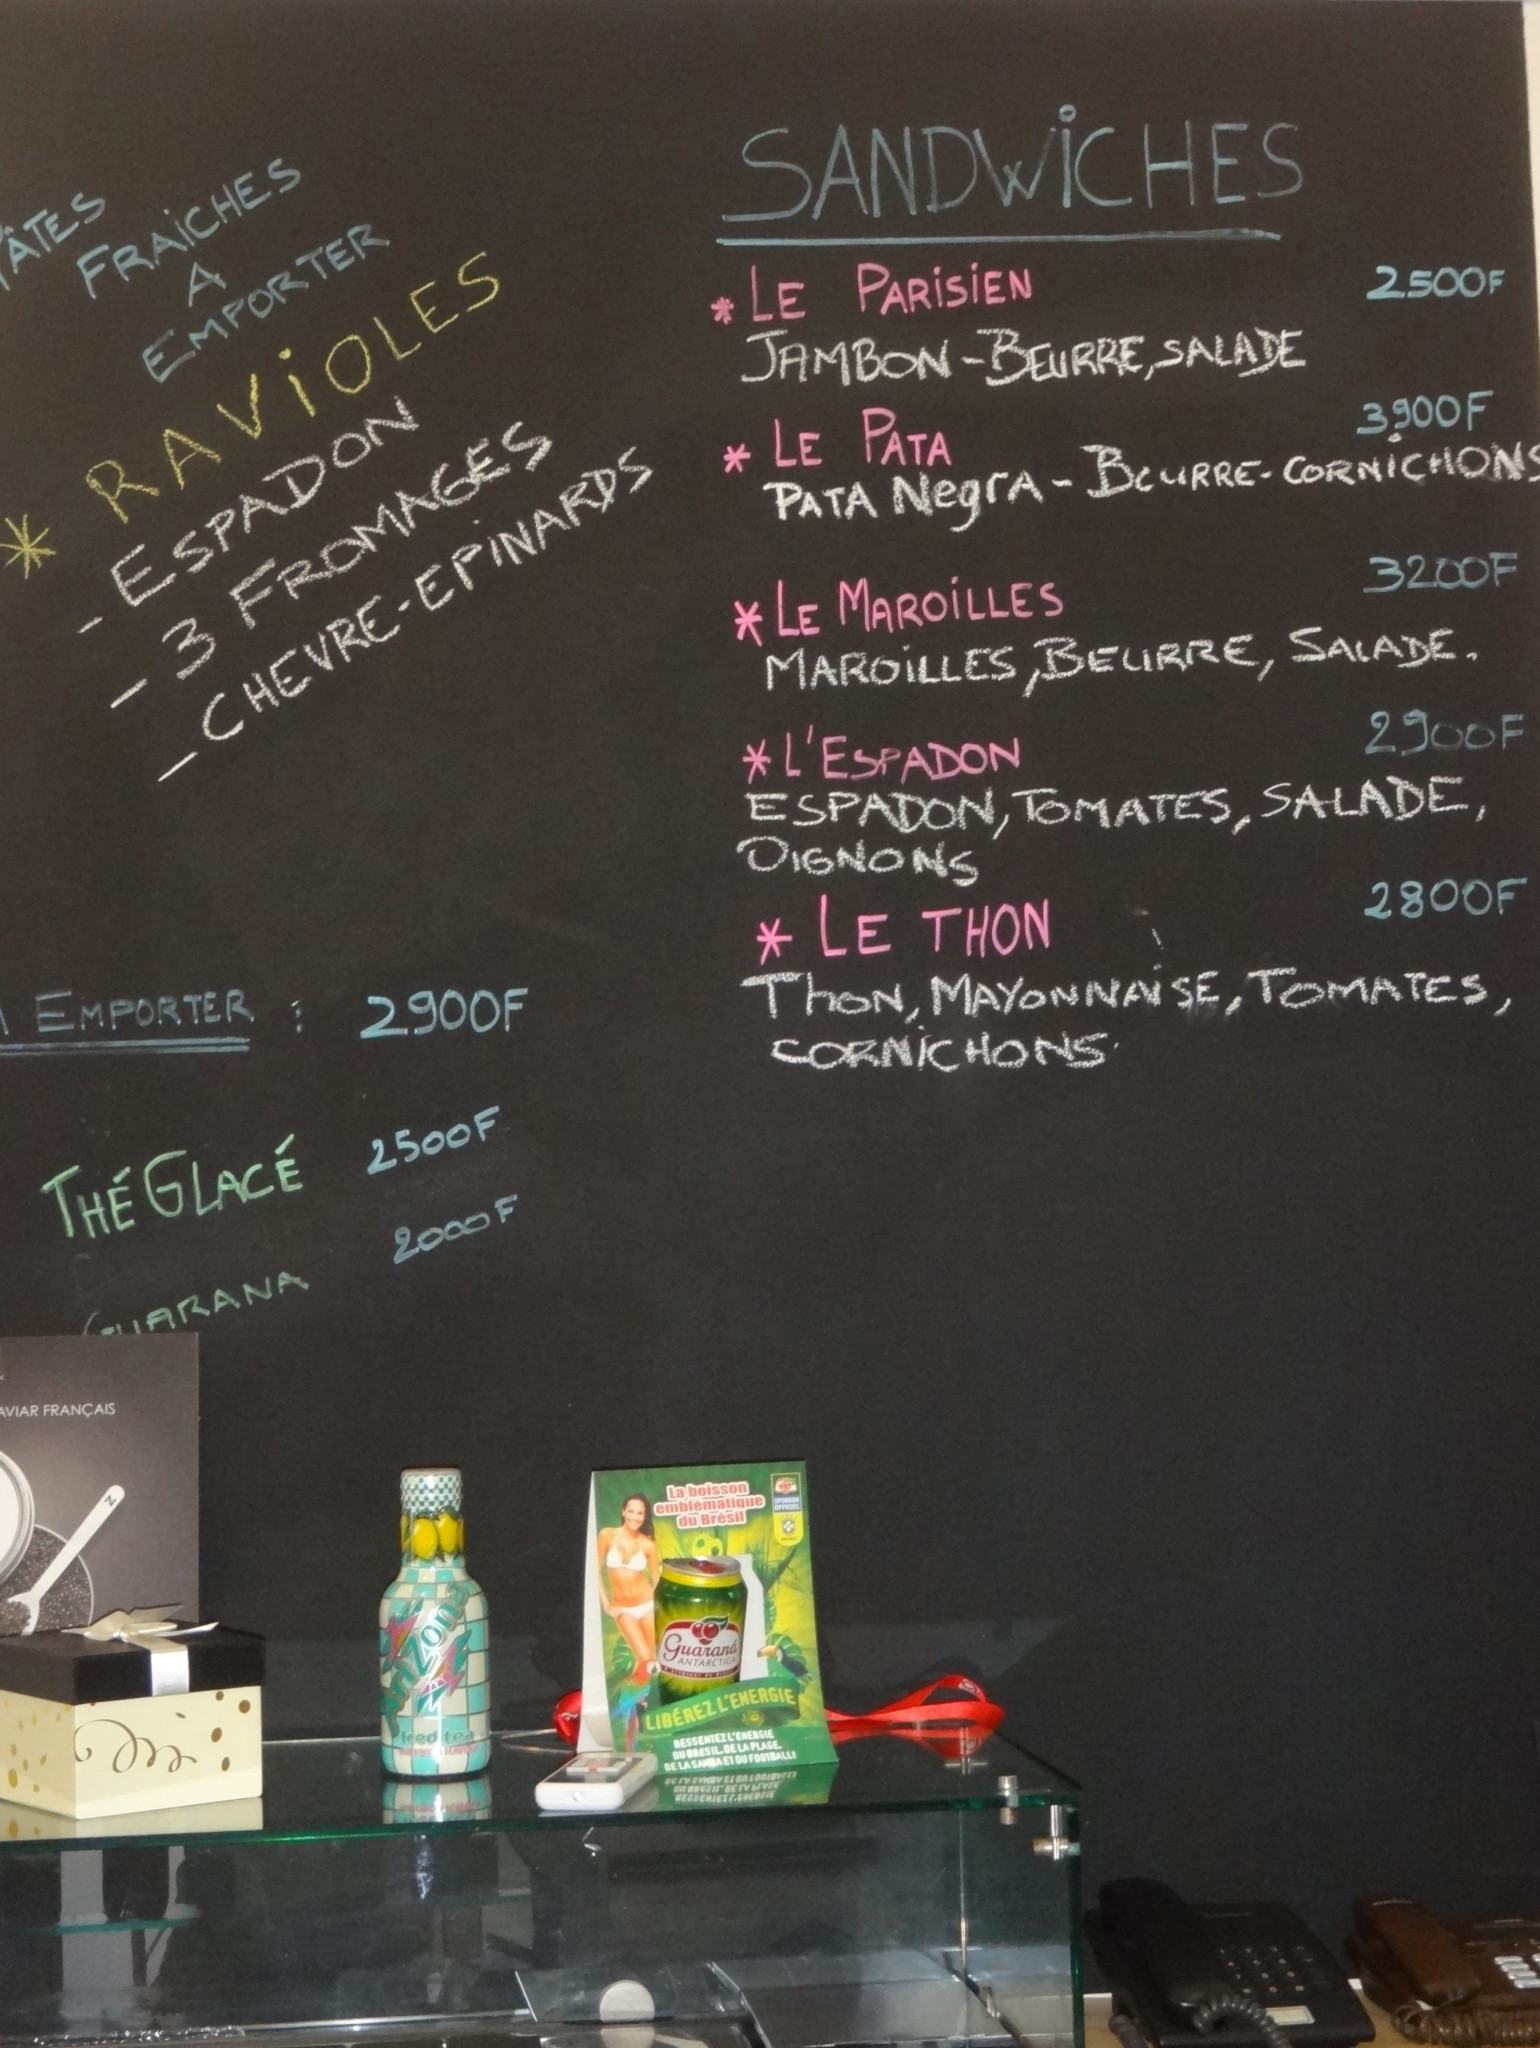 PÂTES
FRAICHES
A
EMPORTER
* RAVIOLES
- ESPADON
- 3 FROMAGES
- CHEVRE-EPINARDS
A EMPORTER : 2900F
THÉ GLACÉ 2500F
GUARANA 2000F
SANDWICHES
* LE PARISIEN 2500F
JAMBON-BEURRE, SALADE
* LE PATA 3900F
PATA NEGRA - BEURRE-CORNICHONS
* LE MAROILLES 3200F
MAROILLES, BEURRE, SALADE.
* L'ESPADON 2900F
ESPADON, TOMATES, SALADE,
OIGNONS
* LE THON 2800F
THON, MAYONNAISE, TOMATES,
CORNICHONS
AVIAR FRANÇAIS
AriZona
iced tea
La boisson
emblématique
du Brésil
SPONSOR
OFFICIEL
Guaraná
ANTARCTICA
LIBÉREZ L'ENERGIE
RESSENTEZ L'ÉNERGIE
DU BRESIL, DE LA PLAGE,
DE LA SAMBA ET DU FOOTBALL!